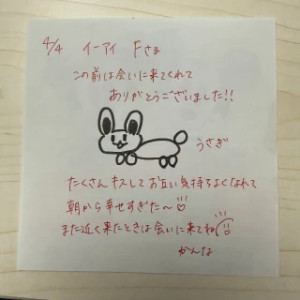 4/4 イーアイ Fさま
この前は会いに来てくれて
ありがとうございました!!
うさぎ
たくさんキスしてお互い気持ちよくなれて
朝から幸せすぎた〜
また近く来たときは会いに来てね
かんな